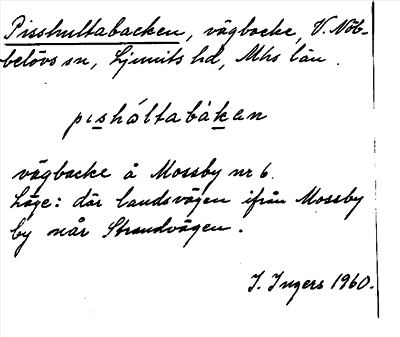 Pisshultabacken, vägbacke, V. Nöb-
belövs sn, Ljunits hd, Mhs län.
pisháltabákan
vägbacke å Mossby nr 6.
Läge: där landsvägen ifrån Mossby
by når Strandvägen.
I. Ingers 1960.